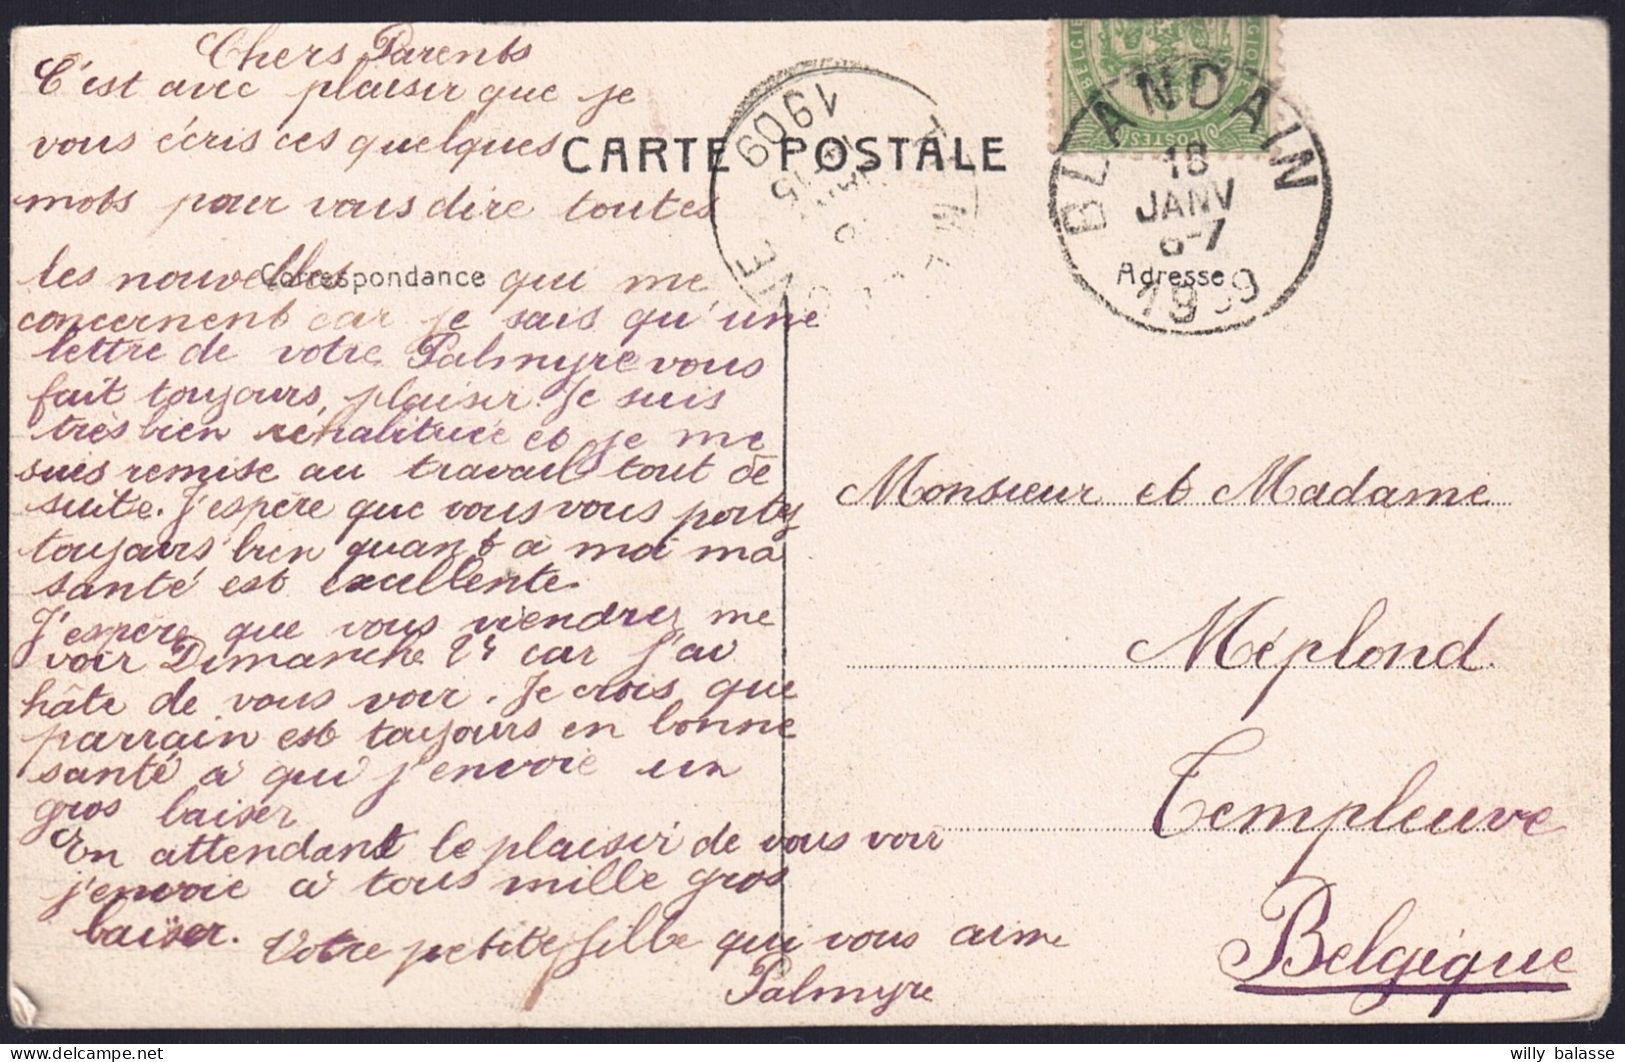 Chers Parents
C'est avec plaisir que je
vous écris ces quelques
mots pour vous dire toutes
les nouvelles qui me
concernent car je sais qu'une
lettre de votre Palmyre vous
fait toujours plaisir. Je suis
très bien réhabituée et je me
suis remise au travail tout de
suite. J'espère que vous vous portez
toujours bien quant à moi ma
santé est excellente.
J'espère que vous viendrez me
voir Dimanche 24 car j'ai
hâte de vous voir. Je crois que
parrain est toujours en bonne
santé à qui j'envoie un
gros baiser
En attendant le plaisir de vous voir
j'envoie à tous mille gros
baiser.
Votre petite fille qui vous aime
Palmyre
CARTE POSTALE
Correspondance
Adresse
1909
15
POSTES
BLANDAIN
18
JANV
6-7
1909
Monsieur et Madame
Méplond.
Templeuve
Belgique
willy balasse